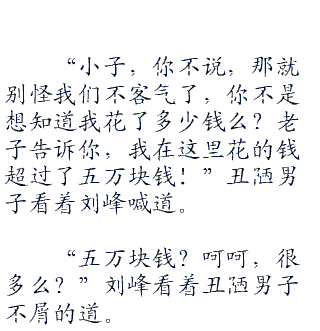 “小子，你不说，那就
别怪我们不客气了，你不是
想知道我花了多少钱么？老
子告诉你，我在这里花的钱
超过了五万块钱！”丑陋男
子看着刘峰喊道。
“五万块钱？呵呵，很
多么？”刘峰看着丑陋男子
不屑的道。